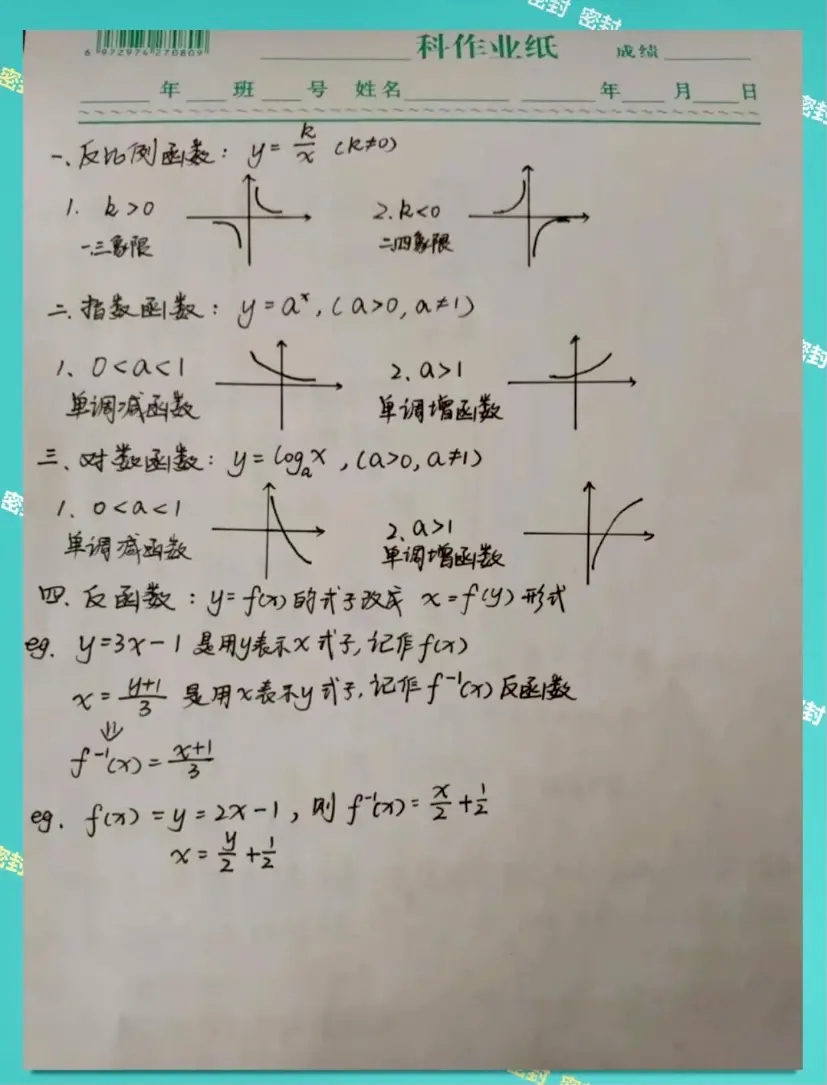 密封 密封
6 972974 270809
科作业纸 成绩
年 班 号 姓名 年 月 日
一、反比例函数: y = k/x (k≠0)
1. k>0 2. k<0
一三象限 二四象限
二、指数函数: y = aˣ, (a>0, a≠1)
1、0<a<1 2、a>1
单调减函数 单调增函数
三、对数函数: y = logₐx, (a>0, a≠1)
1. 0<a<1 2、a>1
单调减函数 单调增函数
四、反函数: y = f(x) 的式子改成 x = f(y) 形式
eg. y=3x-1 是用y表示x式子, 记作 f(x)
x = (y+1)/3 是用x表示y式子, 记作 f⁻¹(x) 反函数
⇓
f⁻¹(x) = (x+1)/3
eg. f(x) = y = 2x-1, 则 f⁻¹(x) = x/2 + 1/2
x = y/2 + 1/2